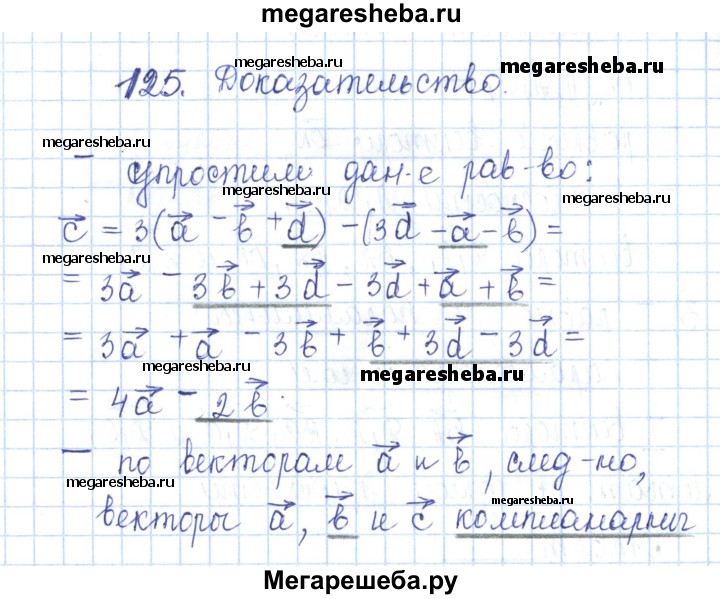 megaresheba.ru
125. Доказательство.
megaresheba.ru
megaresheba.ru
megaresheba.ru
– упростим дан-е рав-во:
megaresheba.ru
megaresheba.ru
c⃗ = 3(a⃗ - b⃗ + d⃗) - (3d⃗ - a⃗ - b⃗) =
megaresheba.ru
megaresheba.ru
= 3a⃗ - 3b⃗ + 3d⃗ - 3d⃗ + a⃗ + b⃗ =
megaresheba.ru
megaresheba.ru
= 3a⃗ + a⃗ - 3b⃗ + b⃗ + 3d⃗ - 3d⃗ =
megaresheba.ru
megaresheba.ru
= 4a⃗ - 2b⃗.
megaresheba.ru
– по векторам a⃗ и b⃗, след-но,
megaresheba.ru
megaresheba.ru
векторы a⃗, b⃗ и c⃗ компланарны
Мегарешеба.ру